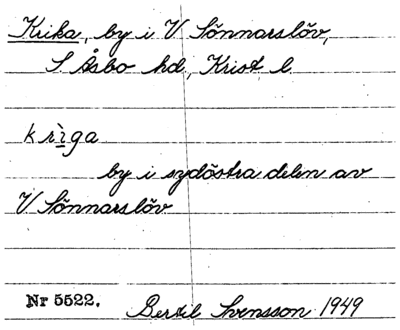 Krika, by i V Sönnarslöv,
S Åsbo hd, Krist l
krìga
by i sydöstra delen av
V Sönnarslöv
Nr 5522. Bertil Svensson 1949